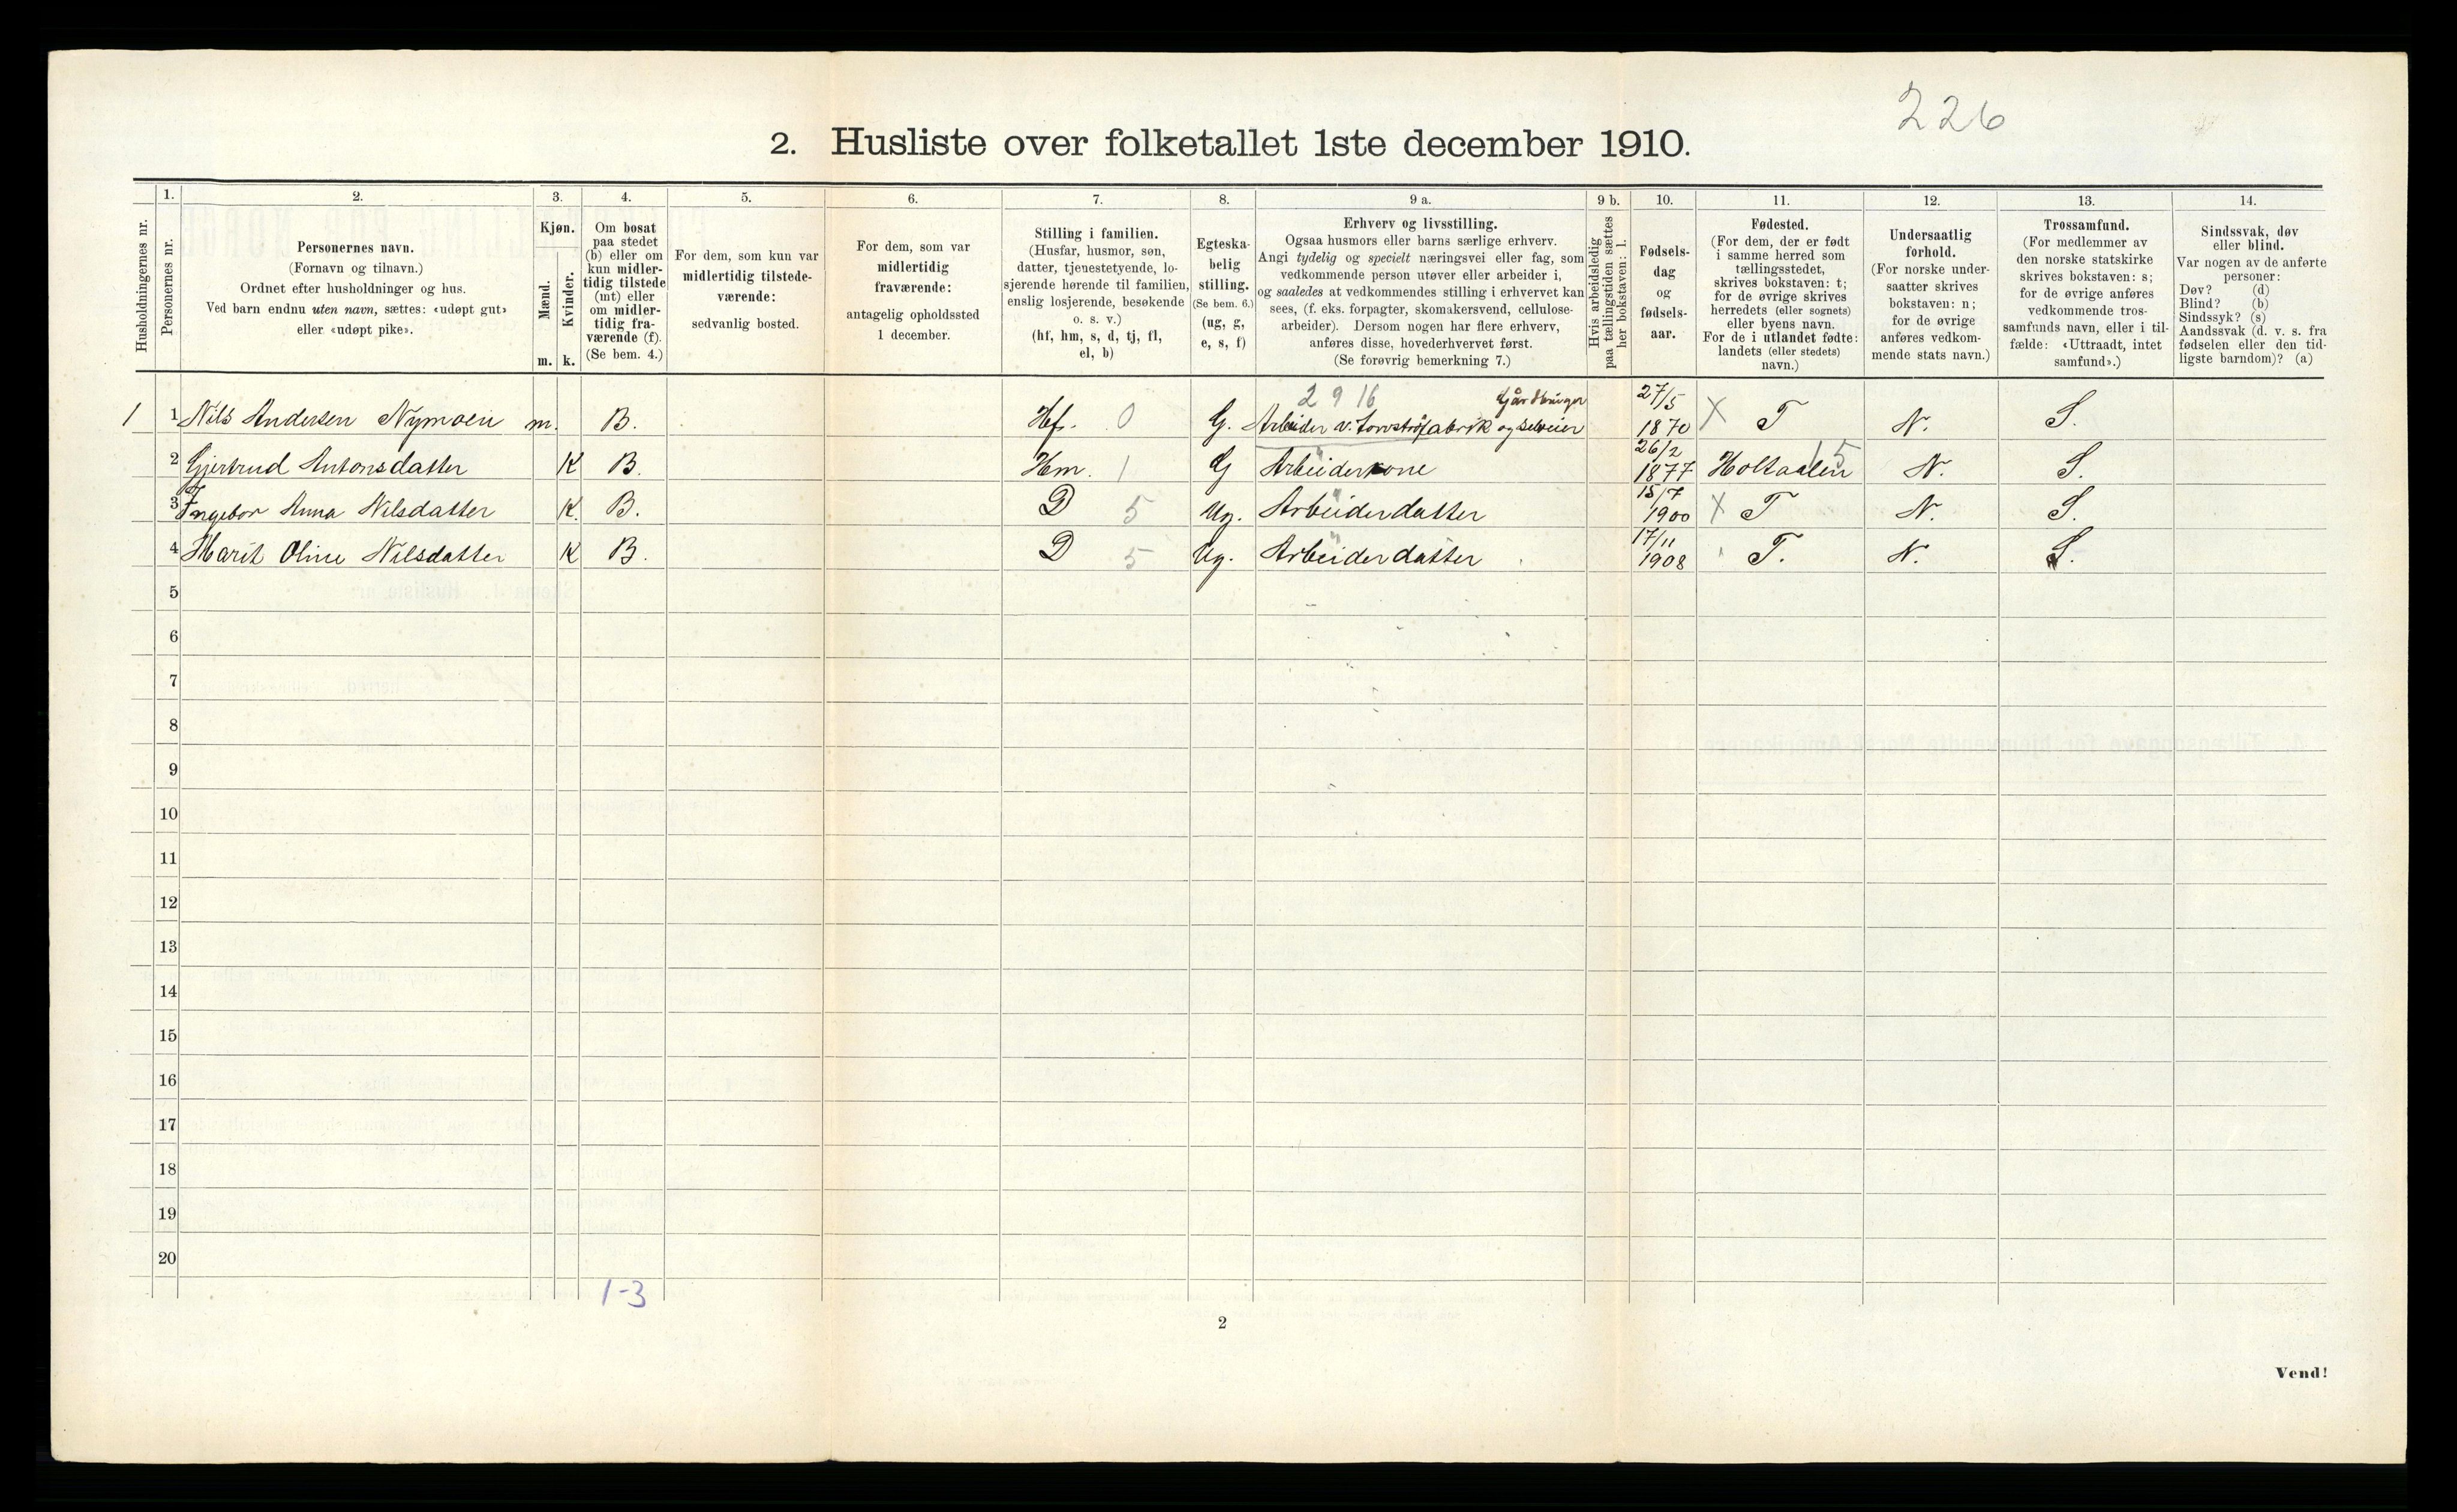 226
2. Husliste over folketallet 1ste december 1910.
Husholdningernes nr.
1.
Personernes nr.
2.
Personernes navn.
(Fornavn og tilnavn.)
Ordnet efter husholdninger og hus.
Ved barn endnu uten navn, sættes: «udøpt gut»
eller «udøpt pike».
3.
Kjøn.
Mænd.
Kvinder.
m. k.
4.
Om bosat
paa stedet
(b) eller om
kun midler-
tidig tilstede
(mt) eller
om midler-
tidig fra-
værende (f).
(Se bem. 4.)
5.
For dem, som kun var
midlertidig tilstede-
værende:
sedvanlig bosted.
6.
For dem, som var
midlertidig
fraværende:
antagelig opholdssted
1 december.
7.
Stilling i familien.
(Husfar, husmor, søn,
datter, tjenestetyende, lo-
sjerende hørende til familien,
enslig losjerende, besøkende
o. s. v.)
(hf, hm, s, d, tj, fl,
el, b)
8.
Egteska-
belig
stilling.
(Se bem. 6.)
(ug, g,
e, s, f)
9 a.
Erhverv og livsstilling.
Ogsaa husmors eller barns særlige erhverv.
Angi tydelig og specielt næringsvei eller fag, som
vedkommende person utøver eller arbeider i,
og saaledes at vedkommendes stilling i erhvervet kan
sees, (f. eks. forpagter, skomakersvend, cellulose-
arbeider). Dersom nogen har flere erhverv,
anføres disse, hovederhvervet først.
(Se forøvrig bemerkning 7.)
9 b.
Hvis arbeidsledig
paa tællingstiden sættes
her bokstaven: l.
10.
Fødsels-
dag
og
fødsels-
aar.
11.
Fødested.
(For dem, der er født
i samme herred som
tællingsstedet,
skrives bokstaven: t;
for de øvrige skrives
herredets (eller sognets)
eller byens navn.
For de i utlandet fødte:
landets (eller stedets)
navn.)
12.
Undersaatlig
forhold.
(For norske under-
saatter skrives
bokstaven: n;
for de øvrige
anføres vedkom-
mende stats navn.)
13.
Trossamfund.
(For medlemmer av
den norske statskirke
skrives bokstaven: s;
for de øvrige anføres
vedkommende tros-
samfunds navn, eller i til-
fælde: «Uttraadt, intet
samfund».)
14.
Sindssvak, døv
eller blind.
Var nogen av de anførte
personer:
Døv? (d)
Blind? (b)
Sindssyk? (s)
Aandssvak (d. v. s. fra
fødselen eller den tid-
ligste barndom)? (a)
2 9 16 Gårdbruger 27/5
1 1 Nils Andersen Nymoen m. B. Hf. 0 G. Arbeider v. torvströfabrik og selveier 1870 X T N. S.
26/2 15
2 Gjertrud Antonsdatter K B. Hm. 1 G Arbeiderkone 1877 Holtaalen N. S.
15/7
3 Ingebor Anna Nilsdatter K. B. D 5 Ug. Arbeiderdatter 1900 X T N. S.
17/11
4 Marit Oline Nilsdatter K B. D 5 Ug. Arbeiderdatter 1908 T. N. S.
5
6
7
8
9
10
11
12
13
14
15
16
17
18
19
20
1-3
2
Vend!